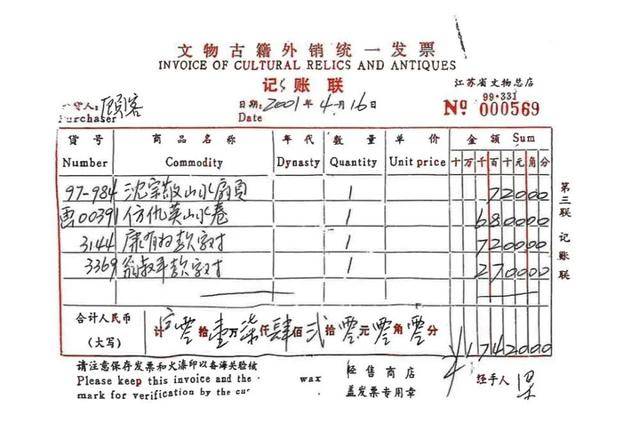 文物古籍外销统一发票
INVOICE OF CULTURAL RELICS AND ANTIQUES
记账联
江苏省文物总店
购货人: 顾客
Purchaser
日期: 2001年4月16
Date
99·331
№ 000569
货号 商品名称 年代 数量 单价 金额 Sum
Number Commodity Dynasty Quantity Unit price 十万千百十元角分
97-984 沈宗敬山水扇页 1 72000
00391 仿仇英山水卷 1 680000
3144 康有为款字对 1 720000
3369 翁叔平款字对 1 270000
第三联 记账联
合计人民币
(大写)
计 零拾壹万柒仟肆佰贰拾零元零角零分
¥1742000
请注意保存发票和火漆印以备海关验核
Please keep this invoice and the wax
mark for verification by the cus
经售商店
盖发票专用章
经手人 梁